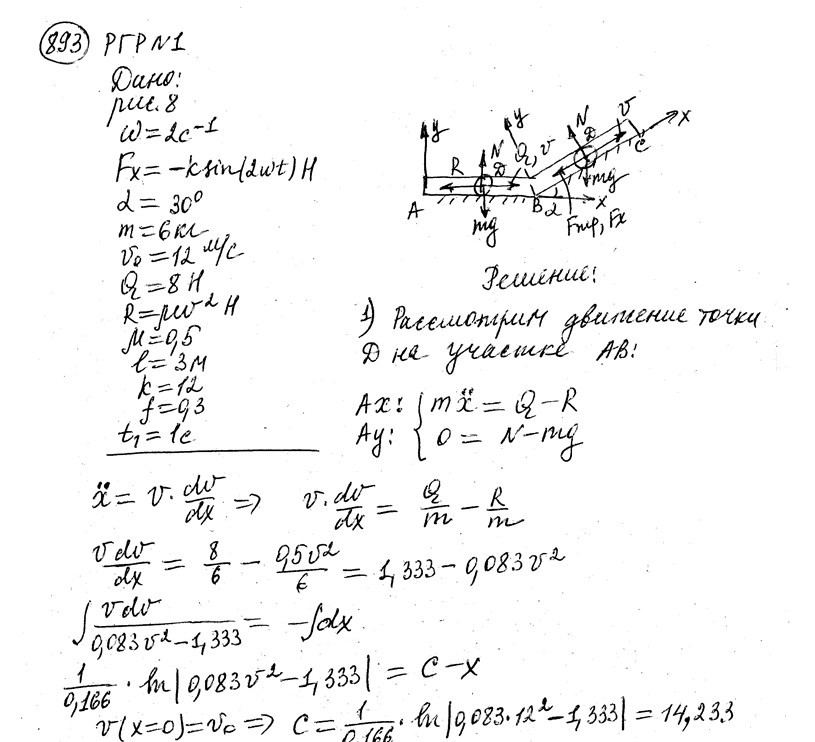 893 РГР N1
Дано:
рис. 8
ω = 2c⁻¹
Fx = -k sin(2ωt) H
α = 30°
m = 6 кг
v₀ = 12 м/с
Q = 8 H
R = μv² H
μ = 0,5
l = 3 м
k = 12
f = 0,3
t₁ = 1c
y
R
N
D
Q, v
A
mg
y
N
D
v
x
C
mg
B
α
x
Fтр, Fx
Решение:
1) Рассмотрим движение точки
D на участке AB:
Ax: { mẍ = Q - R
Ay: { 0 = N - mg
ẍ = v · dv/dx => v · dv/dx = Q/m - R/m
vdv/dx = 8/6 - 0,5v²/6 = 1,333 - 0,083v²
∫ vdv/(0,083v² - 1,333) = -∫dx
1/0,166 · ln|0,083v² - 1,333| = C - x
v(x=0) = v₀ => C = 1/0,166 · ln|0,083·12² - 1,333| = 14,233